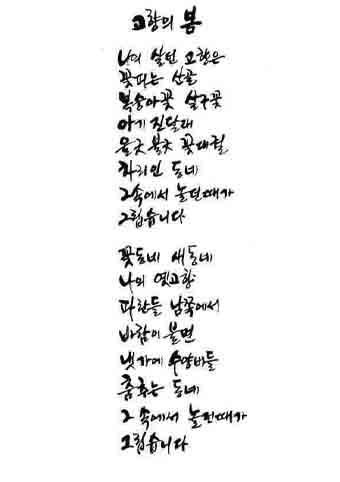 고향의 봄
나의 살던 고향은
꽃피는 산골
복숭아꽃 살구꽃
아기 진달래
울긋 불긋 꽃대궐
차리인 동네
그속에서 놀던때가
그립습니다
꽃동네 새동네
나의 옛고향
파란들 남쪽에서
바람이 불면
냇가에 수양버들
춤추는 동네
그 속에서 놀던때가
그립습니다